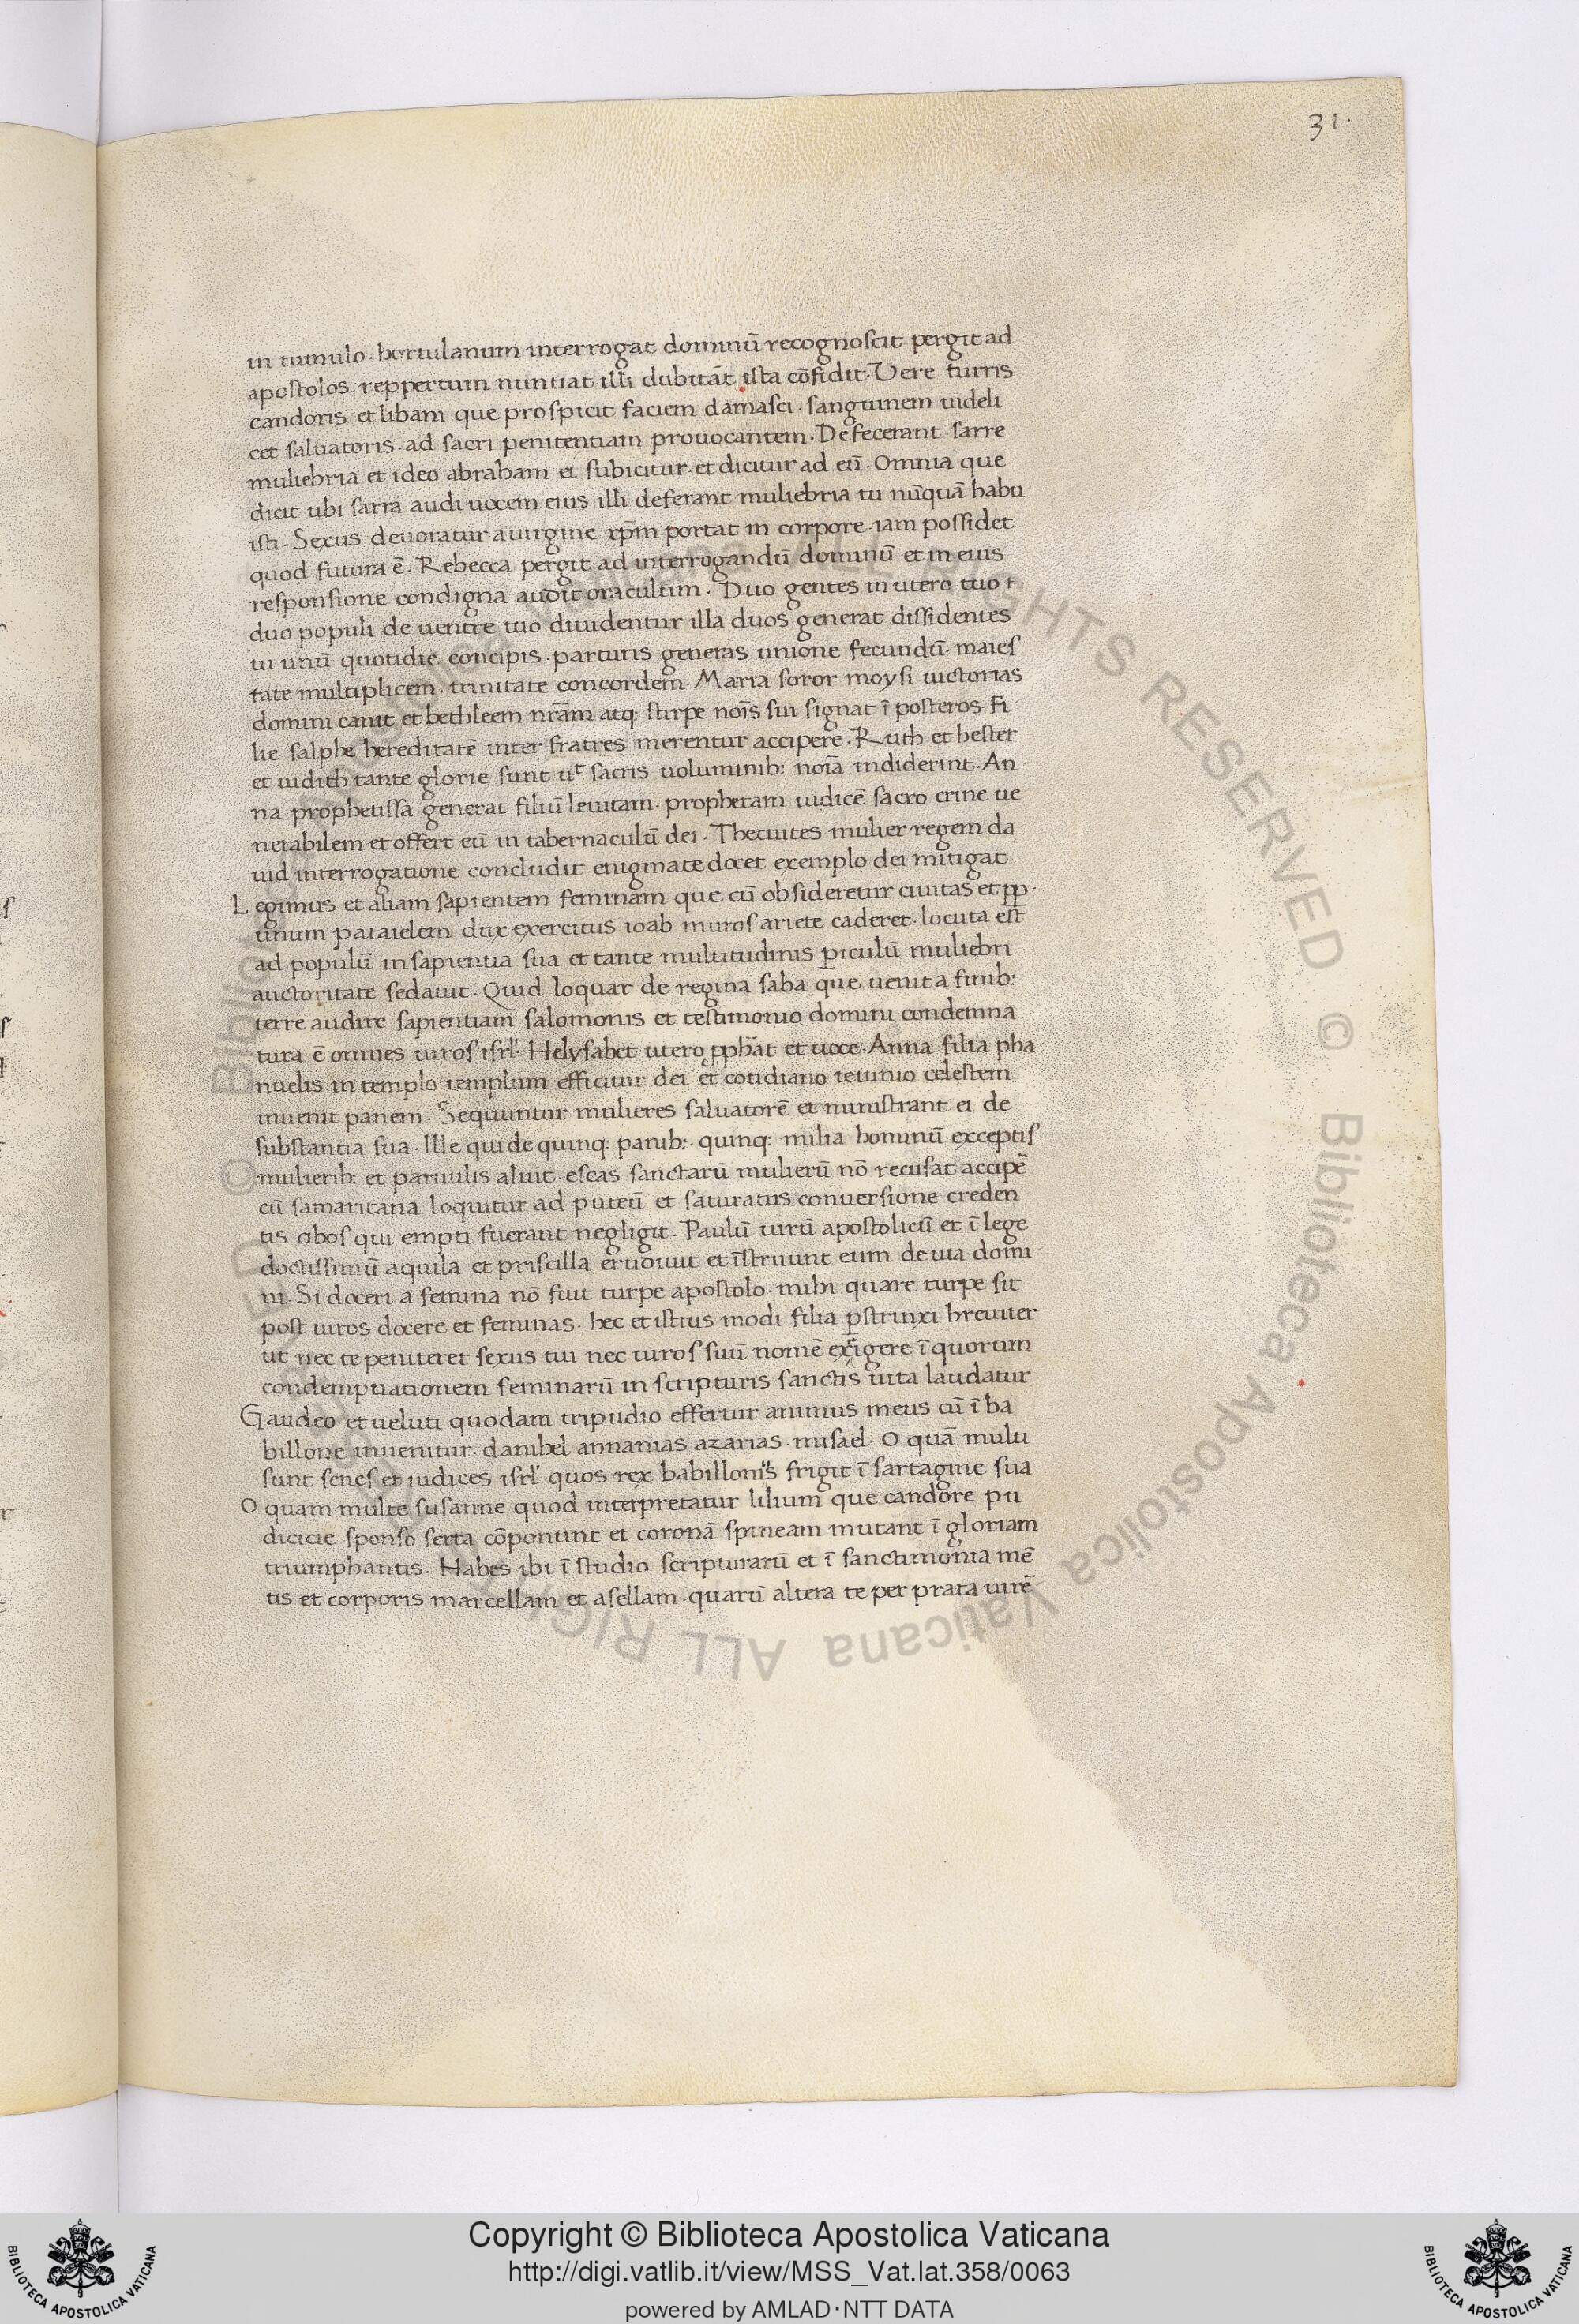 31.
in tumulo. hortulanum interrogat dominū recognoscit pergit ad
apostolos. reppertum nuntiat illi dubitāt ista cōfidit. Vere turris
candoris et libani que prospicit faciem damasci. sanguinem uideli
cet saluatoris. ad sacri penitentiam prouocantem. Defecerant sarre
muliebria et ideo abraham ei subicitur. et dicitur ad eū. Omnia que
dicit tibi sarra audi uocem eius illi deferant muliebria tu nūquā habu
isti. Sexus deuoratur a uirgine xp̄m portat in corpore. iam possidet
quod futura ē. Rebecca pergit ad interrogandū dominū et in eius
responsione condigna audit oraculum. Duo gentes in utero tuo
duo populi de uentre tuo diuidentur illa duos generat dissidentes
tu unū quotidie. concipis. parturis generas unione fecundū. maies
tate multiplicem. trinitate concordem. Maria soror moysi uictorias
domini canit et bethleem nr̄am atq: stirpe noīs sui signat ī posteros. Fi
lie salphe hereditatē inter fratres merentur accipere. Ruth et hester
et iudith tante glorie sunt ut sacris uoluminib: noīa indiderint. An
na prophetissa generat filiū leuitam. prophetam iudicē sacro crine ue
nerabilem et offert eū in tabernaculū dei. Thecuites mulier regem da
uid interrogatione concludit enigmate docet exemplo dei mitigat
Legimus et aliam sapientem feminam que cū obsideretur ciuitas et pp
unum pataielem dux exercitus ioab muros ariete caderet. locuta est
ad populū in sapientia sua et tante multitudinis p̱iculū muliebri
auctoritate sedauit. Quid loquar de regina saba que uenit a finib:
terre audire sapientiam salomonis et testimonio domini condemna
tura ē omnes uiros isrl'. Helysabet utero ꝓph̄at et uoce. Anna filia pha
nuelis in templo templum efficitur dei et cotidiano ieiunio celestem
inuenit panem. Sequuntur mulieres saluatorē et ministrant ei de
substantia sua. Ille qui de quinq: panib:. quinq: milia hominū exceptis
mulierib: et paruulis aluit. escas sanctarū mulierū nō recusat accipē
cū samaritana loquitur ad puteū et saturatus conuersione creden
tis cibos qui empti fuerant negligit. Paulū uirū apostolicū et ī lege
doctissimū aquila et priscilla erudiuit et īstruunt eum de uia domi
ni. Si doceri a femina nō fuit turpe apostolo. mihi quare turpe sit
post uiros docere et feminas. hec et istius modi filia p̱strinxi breuiter
ut nec te peniteret sexus tui nec uiros suū nomē exigere ī quorum
condemptiationem feminarū in scripturis sanctis uita laudatur
Gaudeo et ueluti quodam tripudio effertur animus meus cū ī ba
billone inuenitur. danihel annanias azarias. misael. O quā multi
sunt senes et iudices isrl' quos rex babillonis frigit ī sartagine sua
O quam multe susanne quod interpretatur lilium que candore pu
dicicie sponso serta cōponunt et coronā spineam mutant ī gloriam
triumphantis. Habes ibi ī studio scripturarū et ī sanctimonia mē
tis et corporis marcellam et asellam. quarū altera te per prata uirē
© Biblioteca Apostolica Vaticana ALL RIGHTS RESERVED © Biblioteca Apostolica Vaticana ALL RIGHTS RESERVED
BIBLIOTECA APOSTOLICA VATICANA
Copyright © Biblioteca Apostolica Vaticana
http://digi.vatlib.it/view/MSS_Vat.lat.358/0063
powered by AMLAD·NTT DATA
BIBLIOTECA APOSTOLICA VATICANA